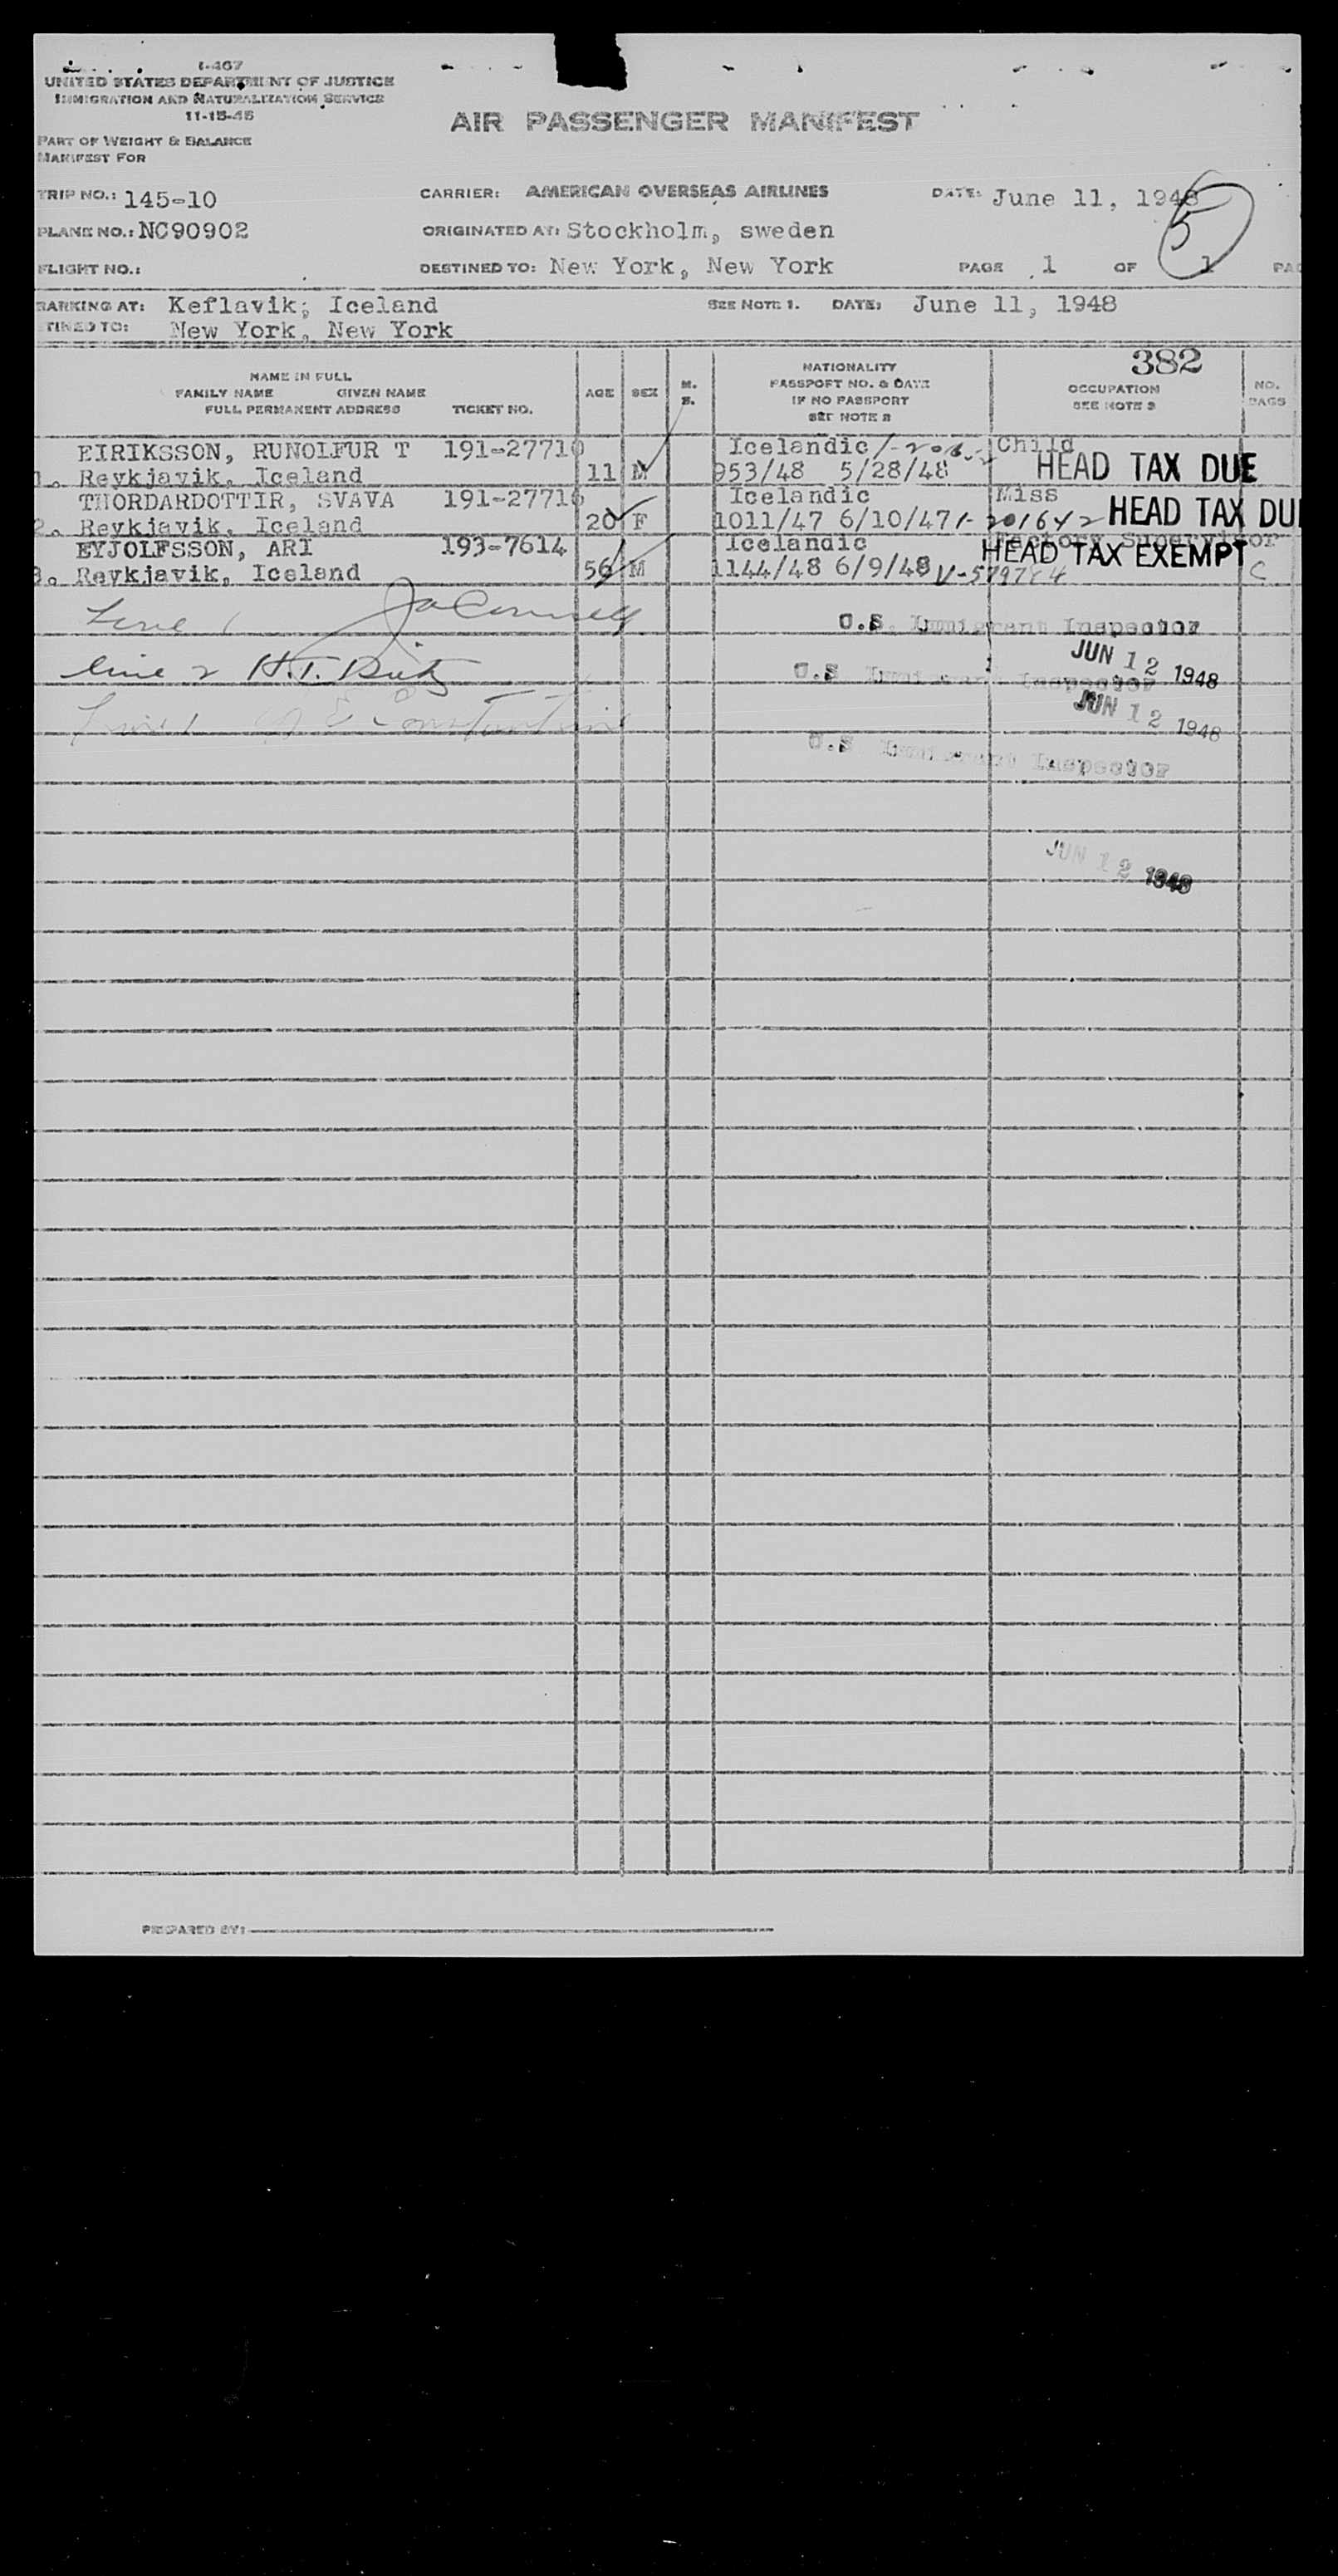 I-467
UNITED STATES DEPARTMENT OF JUSTICE
IMMIGRATION AND NATURALIZATION SERVICE
11-15-45
AIR PASSENGER MANIFEST
PART OF WEIGHT & BALANCE
MANIFEST FOR
TRIP NO.: 145-10 CARRIER: AMERICAN OVERSEAS AIRLINES DATE: June 11, 1948
5
PLANE NO.: NC90902 ORIGINATED AT: Stockholm, sweden
FLIGHT NO.: DESTINED TO: New York, New York PAGE 1 OF 1 PAG
BARKING AT: Keflavik; Iceland SEE NOTE 1. DATE: June 11, 1948
TINED TO: New York, New York
382
NAME IN FULL
FAMILY NAME GIVEN NAME
FULL PERMANENT ADDRESS TICKET NO.
AGE SEX
NATIONALITY
PASSPORT NO. & DATE
IF NO PASSPORT
SEE NOTE 2
OCCUPATION
SEE NOTE 3
NO.
BAGS
EIRIKSSON, RUNOLFUR T 191-27710 Icelandic Child
1. Reykjavik, Iceland 11 M 953/48 5/28/48 HEAD TAX DUE
THORDARDOTTIR, SVAVA 191-27716 Icelandic Miss
2. Reykjavik, Iceland 20 F 1011/47 6/10/47 1-201642 HEAD TAX DU
EYJOLFSSON, ARI 193-7614 Icelandic Factory Supervisor
3. Reykjavik, Iceland 56 M 1144/48 6/9/48 HEAD TAX EXEMPT C
Line 1 U.S. Immigrant Inspector
JUN 12 1948
Line 2 U.S Immigrant Inspector
JUN 12 1948
U.S Immigrant Inspector
JUN 12 1948
PREPARED BY: